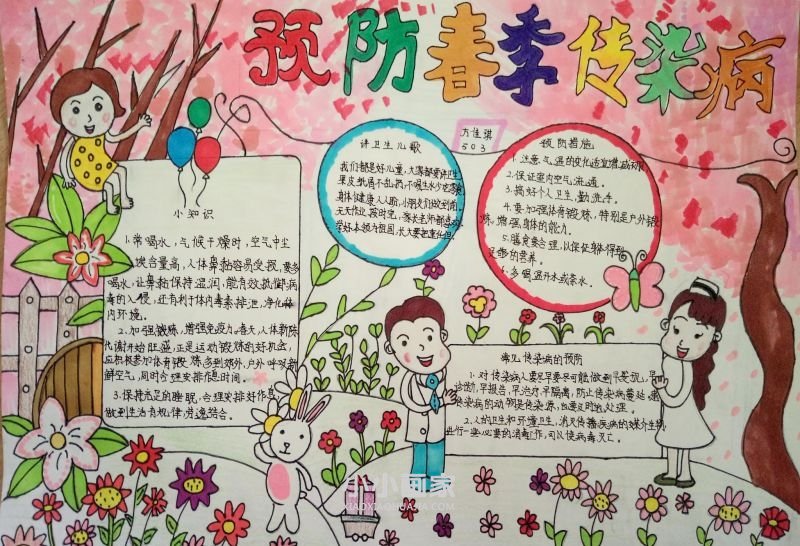 预防春季传染病
讲卫生儿歌
我们都是好儿童,大家都要讲卫生
果皮纸屑不乱扔,不喝生水少吃零食
身体健康人人夸,小朋友们做到
方佳琪
503
预防措施
1.注意气温的变化适宜增减衣服
2.保证室内空气流通。
3.搞好个人卫生,勤洗手。
4.要加强体育锻炼,特别是户外锻
炼,增强身体的能力。
5.膳食要合理,以保证身体得到
足够的营养。
6.多喝温开水或茶水。
小知识
1.常喝水,气候干燥时,空气中尘
埃含量高,人体鼻黏容易受损,要多
喝水,让鼻黏保持湿润,能有效抵御病
毒的入侵,还有利于体内毒素排泄,净化体
内环境。
2.加强锻炼,增强免疫力。春天,人体新陈
代谢开始旺盛,正是运动锻炼的好机会,
应积极参加体育锻炼,多到郊外、户外呼吸新
鲜空气,同时合理安排作息时间。
3.保持充足的睡眠,合理安排好作息,
做到生活有规律,劳逸结合。
常见传染病的预防
1.对传染病人要尽早尽可能做到早发现,早
诊断,早报告,早治疗,早隔离,防止传染病蔓延,患
传染病的动物是传染源,也要及时地处理。
2.人的卫生和环境卫生,消灭传播疾病的媒介生物,
进行一些必要的消毒工作,可以使病毒灭亡。
小小画家
XIAOXIAOHUAJIA.COM